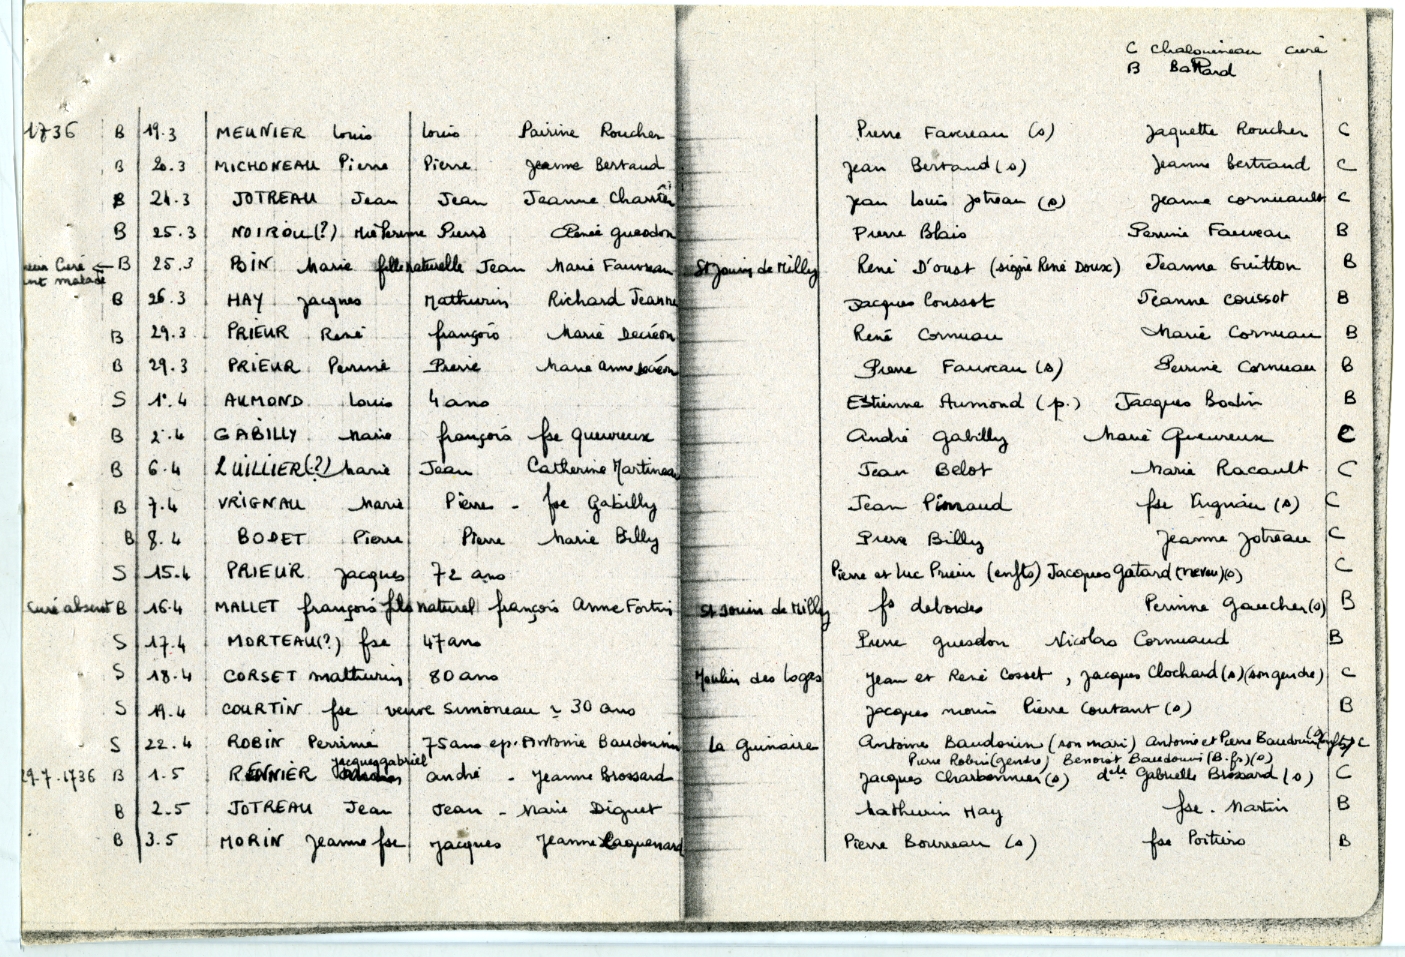 C Chalouineau curé
B Battard
1736 B 19.3 MEUNIER Louis Louis Pairine Rocher Pierre Favereau (s) Jaquette Rocher C
B 20.3 MICHONEAU Pierre Pierre Jeanne Bertaud Jean Bertand (s) Jeanne bertrand C
B 21.3 JOTREAU Jean Jean Jeanne Jean Louis Jotreau (s) Jeanne cornuault C
B 25.3 NOIROU(?) Pierre Renée Guesdon Pierre Blais Perrine Fauveau B
Curé malade ← B 25.3 BIN Marie fille naturelle Jean Marie Fauvreau St Jouin de Milly René D'oust (signé René Doux) Jeanne Guitton B
B 26.3 HAY Jacques Mathurin Richard Jeanne Jacques Coussot Jeanne coussot B
B 29.3 PRIEUR René françois Marie Decéon René Cornuau Marie Cornuau B
B 29.3 PRIEUR Perrine Pierre Marie Anne Decéon Pierre Fauveau (s) Perrine Cornuau B
S 1°.4 AUMOND Louis 4 ans Estienne Aumond (p.) Jacques Bodin B
B 2.4 GABILLY Marie françois fse Queureux André Gabilly Marie Queureux C
B 6.4 LUILLIER(?) Marie Jean Catherine Martineau Jean Belot Marie Racault C
B 7.4 VRIGNAU Marie Pierre - fse Gabilly Jean Pinnaud fse Vrignau (s) C
B 8.4 BODET Pierre Pierre Marie Billy Pierre Billy Jeanne Jotreau C
S 15.4 PRIEUR Jacques 72 ans Pierre et Luc Prieur (enfts) Jacques Gatard (neveu)(s) C
Curé absent B 16.4 MALLET françois fils naturel françois Anne Fortin St Jouin de Milly fs debordes Perinne Gaucher(s) B
S 17.4 MORTEAU(?) fse 47 ans Pierre guesdon Nicolas Cornuaud B
S 18.4 CORSET mathurin 80 ans Moulin des Loges Jean et René Cosset, Jacques Clochard(s)(son gendre) C
S 19.4 COURTIN fse veuve Simoneau ~ 30 ans Jacques morin Pierre Coutant (s) B
S 22.4 ROBIN Perrine 75 ans ep. Antoine Baudouin La Guinaire Antoine Baudouin (son mari) Antoine et Pierre Baudouin (s) (enfts) C
Pierre Robin (gendre) Benoist Baudouin (B.fs)(s)
29.7.1736 B 1.5 RENNIER Jacques gabriel andré - Jeanne Brossard Jacques Charbonnier(s) delle Gabrielle Brossard (s) C
B 2.5 JOTREAU Jean Jean - Marie Diguet Mathurin Hay fse. Martin B
B 3.5 MORIN Jeanne fse Jacques Jeanne Laguenard Pierre Bourreau (s) fse Poitiers B